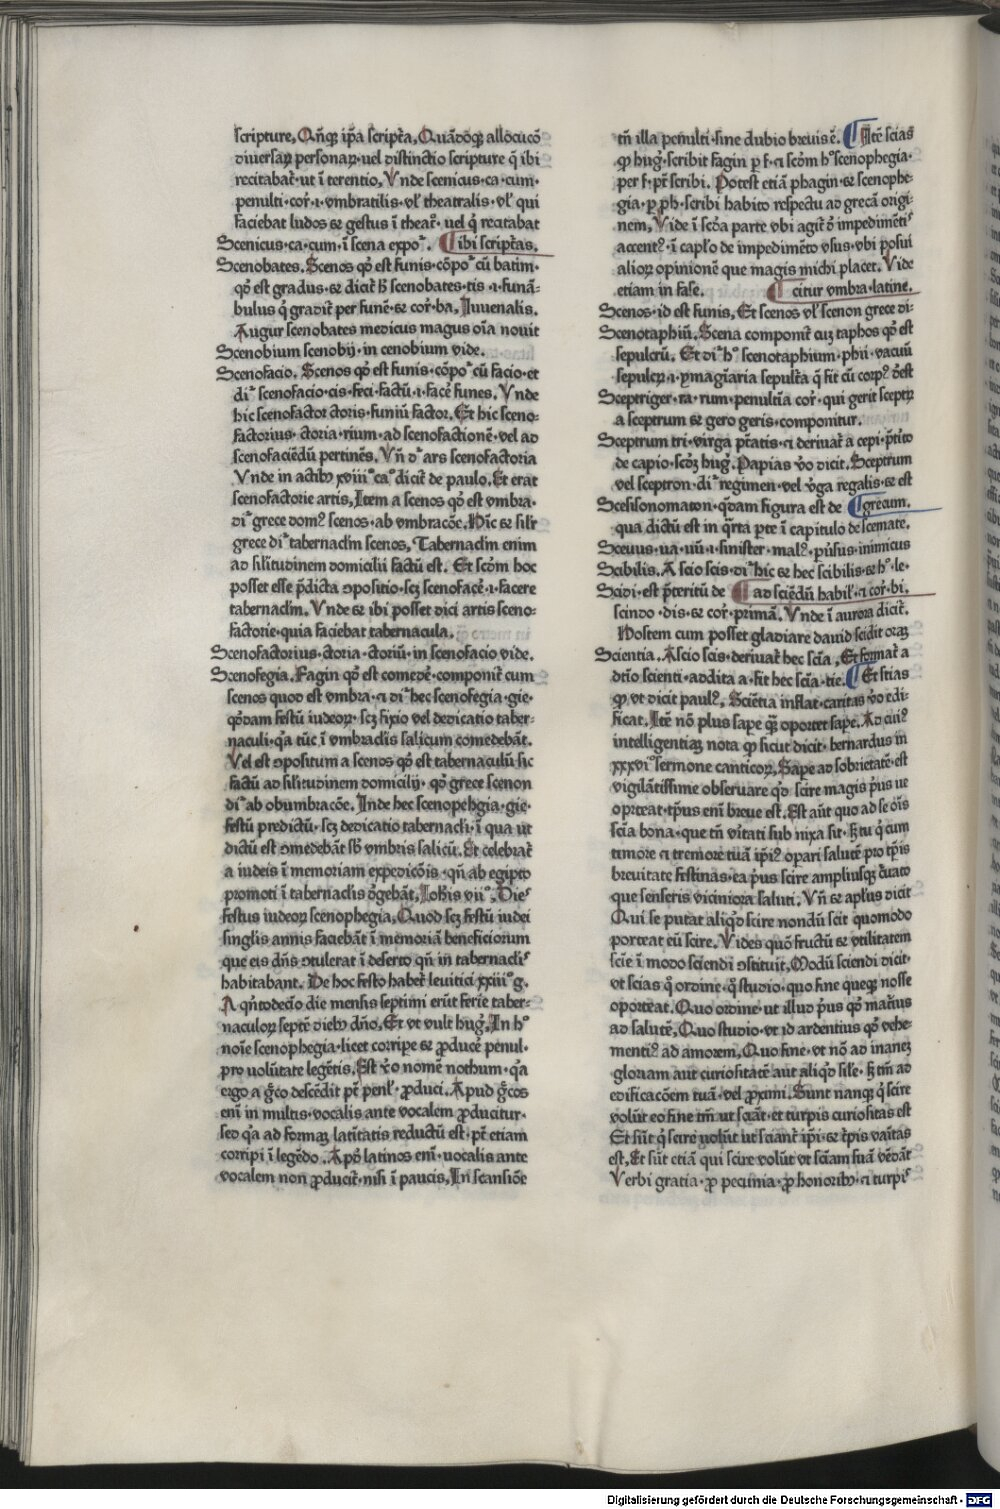 scripture. Qn̄qꝫ ip̄a script̄a. Quādoqꝫ allocucō
diuersaꝝ personaꝝ·uel distinctio scripture q̄ ibi
recitabat᷑·ut ī terentio. Vnde scenicus·ca·cum·
penulti·cor̄·ı·vmbratilis·vl̓ theatralis·vl̓ qui
faciebat ludos ⁊ gestus ī theat᷑·uel q̄ recitabat
Scenicus·ca·cum·ī scena expoᵒ. ¶ibi script̄as.
Scenobates. Scenos qḋ est funis·cōpoᵒ cū batim·
qḋ est gradus·⁊ dicit᷑ h̄ scenobates·tis·ı·funā-
bulus q̄ gradit᷑ per funē·⁊ cor̄·ba. Iuuenalis.
Augur scenobates medicus magus oīa nouit
Scenobium scenobij·in cenobium vide.
Scenofacio. Scenos qḋ est funis·cōpoᵒ cū facio·et
di᷑ scenofacio·cis·feci·factū·ı·facē funes. Vnde
hic scenofactor ctoris·funiū factor. Et hic sceno-
factorius·ctoria·rium·ad scenofactionē·vel ad
scenofaciēdū pertinēs. Vn̄ d᷑ ars scenofactoria
Vnde in actibꝫ xviiiᵒ caᵒ dicit᷑ de paulo. Et erat
scenofactorie artis. Item a scenos qḋ est vmbra·
di᷑ grece domꝰ scenos·ab vmbracōe. Hīc ⁊ sil̓r
grece di᷑ tabernacl̄m scenos. Tabernacl̄m enim
ad sil̓itudinem domicilii factū est. Et scōm hoc
posset esse p̄dicta ꝯpositio·scꝫ scenofacē·ı·facere
tabernacl̄m. Vnde ⁊ ibi posset dici artis sceno-
factorie·quia faciebat tabernacula.
Scenofactorius·ctoria·ctoriū·in scenofacio vide.
Scenofegia. Fagin qḋ est comedē·componit᷑ cum
scenos quod est vmbra·⁊ di᷑ hec scenofegia·gie·
q̄dam festū iudeoꝝ·scꝫ fixio vel dedicatio taber-
naculi·q̄a tūc ī vmbraclis salicum comedebāt.
Vel est ꝯpositum a scenos qḋ est tabernaculū sic
factū ad sil̓itudinem domicilij·qḋ grece scenon
di᷑ ab obumbracōe. Inde hec scenophegia·gie·
festū predictū·scꝫ dedicatio tabernacli·ī qua ut
dictū est ꝯmedebāt sb̄ vmbris salicū. Et celebrat᷑
a iudeis ī memoriam expedicōis·qn̄ ab egipto
promoti ī tabernaclis d̄gebāt. Ioh̄is viiᵒ. Dieˢ
festus iudeoꝝ scenophegia. Quod scꝫ festū iudei
singl̄is annis faciebāt ī memoriā beneficiorum
que eis dn̄s ꝯtulerat ī deserto qn̄ in tabernaclˢ
habitabant. De hoc festo habet᷑ leuitici xxiiiᵒ g.
A qn̄todecīo die mensis septimi erūt ferie taber-
naculoꝝ septē diebꝫ dn̄o. Et vt vult hug᷑. In hᵒ
noīe scenophegia·licet corripe ⁊ ꝓducē penul·
pro uolūtate legētis. Est v̊o nomē nothum·q̄a
ergo a ḡco descēdit pt̄ penl̓·ꝓduci. Apud ḡcos
enī in multis·vocalis ante vocalem ꝓducitur·
sed q̄a ad formaꝫ latītatis reductū est·pt̄ etiam
corripi ī legēdo. Apd̓ latinos enī·uocalis ante
vocalem non ꝓducit᷑·nisi ī paucis. In scansiōe
tn̄ illa penulti·sine dubio breuis ē. ¶Itē scias
ꝙ hug᷑·scribit fagin ꝑ f·⁊ scōm hᵒ scenophegia·
per f·pt̄ scribi. Potest etiā phagin·⁊ scenophe-
gia·ꝑ ph·scribi habito respectu ad grecā origi-
nem. Vide ī scōa parte vbi agit᷑ d̄ impedimētˢ
accentꝰ·ī caplo de impedimēto vsus·vbi posui
alioꝝ opinionē que magis michi placet. Vide
etiam in fase. ¶citur vmbra·latine.
Scenos·id est funis. Et scenos vl̓ scenon grece di-
Scenotaphiū. Scena componit᷑ cuꝫ taphos qḋ est
sepulcrū. Et di᷑ hᵒ scenotaphium·phii·vacuū
sepulcꝝ·ı·ymagīaria sepult̄a q̄ fit cū corpꝰ ōest
Sceptriger·ra·rum·penultīa cor̄·qui gerit sceptꝝ
a sceptrum ⁊ gero geris·componitur.
Sceptrum tri·virga pt̄atis·⁊ deriuat᷑ a cepi·pt̄ito
de capio·scōꝫ hug᷑. Papias v̊o dicit. Sceptrum
vel sceptron·di᷑ regimen·vel v̓ga regalis·⁊ est
Scesisonomaton·q̄dam figura est de ¶grecum.
qua dictū est in q̄rta pte ī capitulo de scemate.
Sceuus·ua·uū·ı·sinister·malꝰ·pūsus·inimicus
Scibilis. A scio scis·di᷑ hic ⁊ hec scibilis·⁊ hᵒ·le·
Scidi·est p̄teritū de ¶ad sciēdū habil̓·⁊ cor̄·bi.
scindo·dis·⁊ cor̄·primā. Vnde ī aurora dicit᷑.
Hostem cum posset gladiare dauid scidit oraꝫ
Scientia. A scio scis·deriuat᷑ hec scīa. Et format᷑ a
dtīo scienti·addita a·fit hec scīa·tie. ¶Et scias
ꝙ vt dicit paulꝰ. Sciētia inflat·caritas v̊o edi-
ficat. Itē nō plus sape qꝫ oportet sape. Ad cuiꝰ
intelligentiaꝫ nota ꝙ sicut dicit·bernardus in
xxxviᵒ sermone canticoꝝ. Sape ad sobrietatē·est
vigilātissime obseruare qḋ scire magis p̄us ue
oprteat·tp̄us enī breue est. Est aūt quo ad se oīs
scīa bona·que tn̄ v̓itati sub nixa sit·sꝫ tu q̄ cum
timore ⁊ tremore tuā ip̄iꝰ opari salutē pro tp̄is
breuitate festinas·ea p̄us scire ampliusqꝫ c̄uato
que senseris viciniora saluti. Vn̄ ⁊ apl̄us dicit
Qui se putat aliqd̓ scire nondū scit quomodo
porteat eū scire. Vides quō fructū ⁊ vtilitatem
scīe ī modo sciendi ꝯstituit. Modū sciendi dicit·
vt scias q̄ ordine·q̄ studio·quo fine queqꝫ nosse
oporteat. Quo ordine·ut illud p̄us qḋ mat̄ius
ad salutē. Quo studio·vt id ardentius qḋ vehe-
mentiꝰ ad amorem. Quo fine·vt nō ad inaneꝫ
gloriam aut curiositatē aut aliqd̓ sil̓e·sꝫ tm̄ ad
edificacōem tuā·vel ꝓximi. Sunt nanqꝫ q̄ scire
volūt eo fine tm̄ ut sciāt·et turpis curiositas est
Et sūt q̄ scire uolūt ut sciant᷑ ip̄i·⁊ t̓pis vaītas
est. Et sūt etiā qui scire volūt vt scīam suā vēdāt
Verbi gratia·ꝓ pecunia·ꝓ honoribꝫ·⁊ turpiˢ
Digitalisierung gefördert durch die Deutsche Forschungsgemeinschaft - DFG